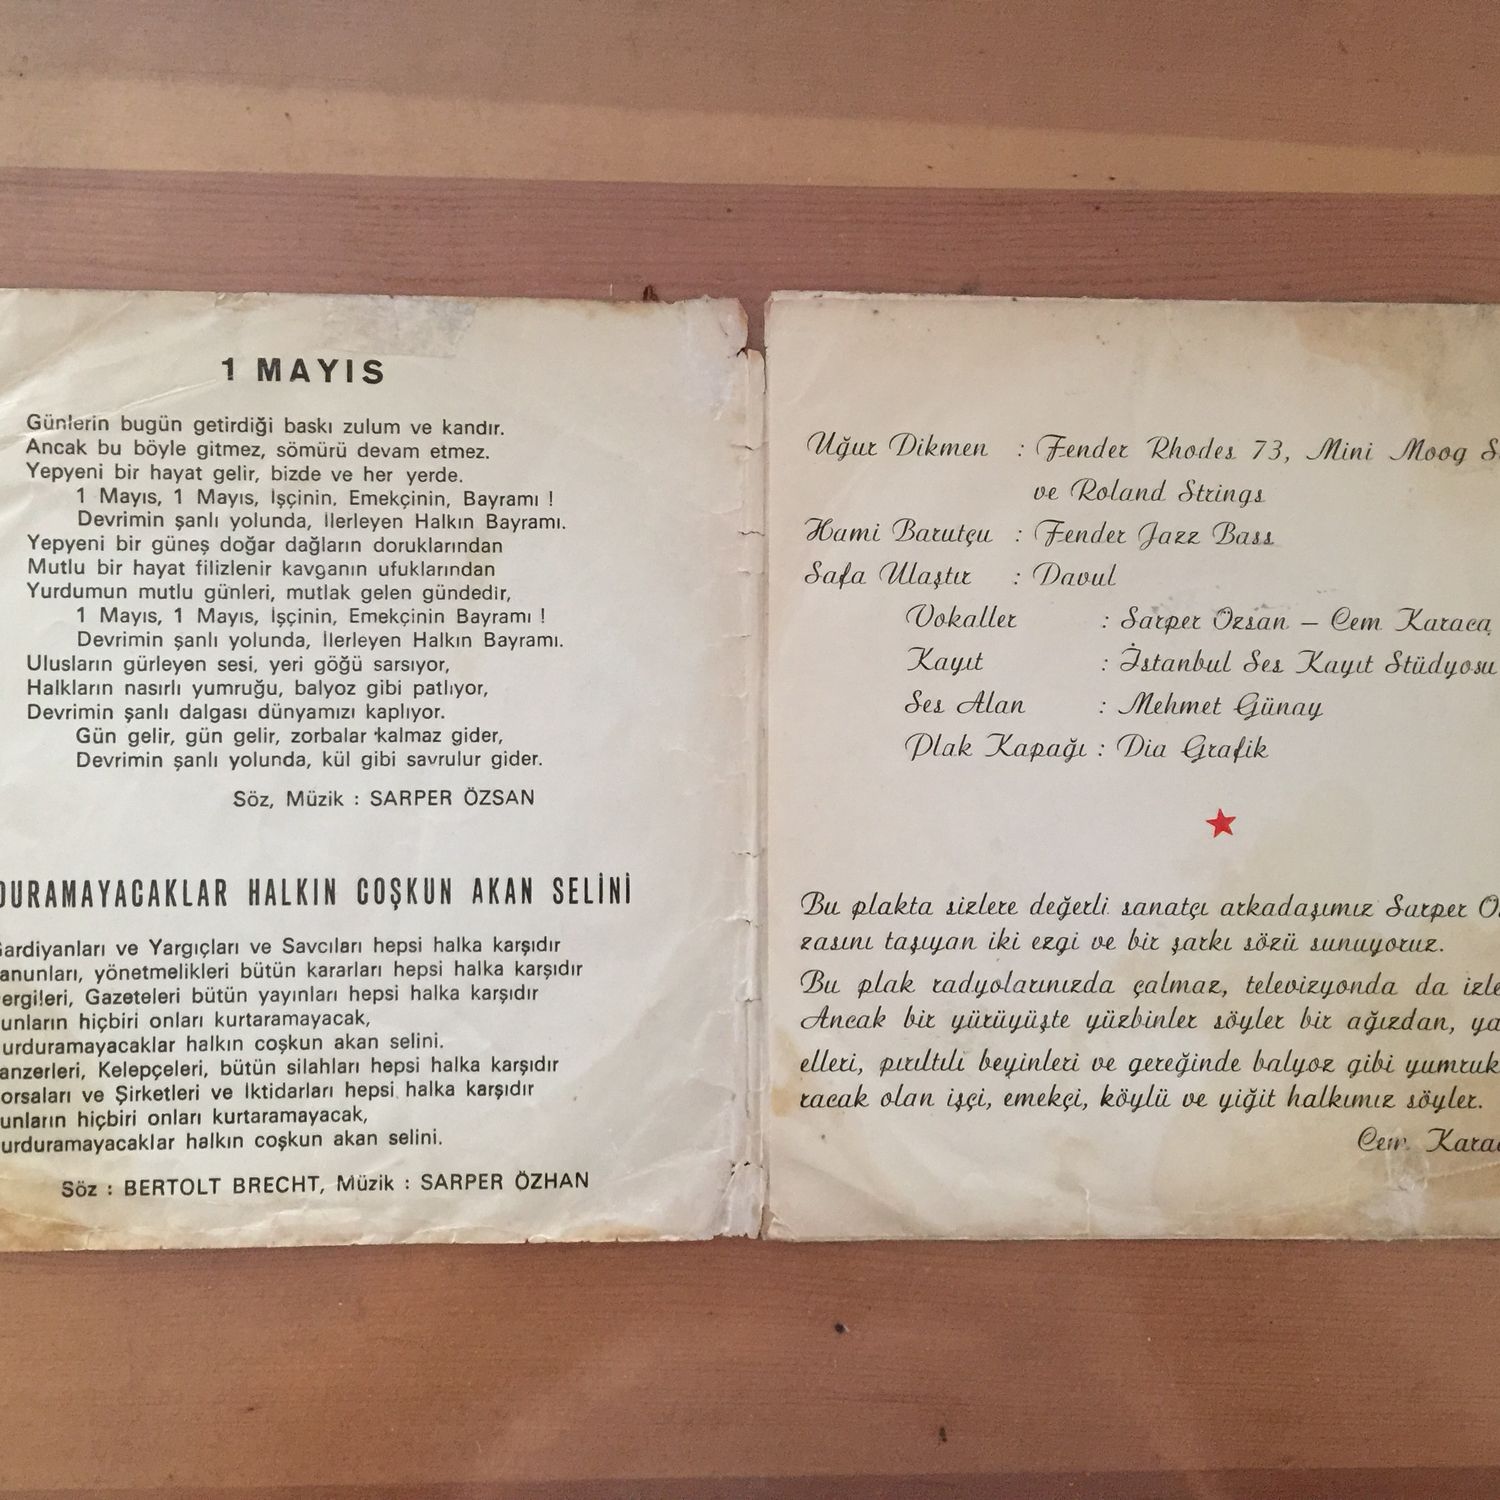 1 MAYIS
Günlerin bugün getirdiği baskı zulum ve kandır.
Ancak bu böyle gitmez, sömürü devam etmez.
Yepyeni bir hayat gelir, bizde ve her yerde.
1 Mayıs, 1 Mayıs, İşçinin, Emekçinin, Bayramı !
Devrimin şanlı yolunda, İlerleyen Halkın Bayramı.
Yepyeni bir güneş doğar dağların doruklarından
Mutlu bir hayat filizlenir kavganın ufuklarından
Yurdumun mutlu günleri, mutlak gelen gündedir,
1 Mayıs, 1 Mayıs, İşçinin, Emekçinin Bayramı !
Devrimin şanlı yolunda, İlerleyen Halkın Bayramı.
Ulusların gürleyen sesi, yeri göğü sarsıyor,
Halkların nasırlı yumruğu, balyoz gibi patlıyor,
Devrimin şanlı dalgası dünyamızı kaplıyor.
Gün gelir, gün gelir, zorbalar kalmaz gider,
Devrimin şanlı yolunda, kül gibi savrulur gider.
Söz, Müzik : SARPER ÖZSAN
DURAMAYACAKLAR HALKIN COŞKUN AKAN SELİNİ
ardiyanları ve Yargıçları ve Savcıları hepsi halka karşıdır
anunları, yönetmelikleri bütün kararları hepsi halka karşıdır
ergileri, Gazeteleri bütün yayınları hepsi halka karşıdır
unların hiçbiri onları kurtaramayacak,
urduramayacaklar halkın coşkun akan selini.
anzerleri, Kelepçeleri, bütün silahları hepsi halka karşıdır
orsaları ve Şirketleri ve İktidarları hepsi halka karşıdır
unların hiçbiri onları kurtaramayacak,
urduramayacaklar halkın coşkun akan selini.
Söz : BERTOLT BRECHT, Müzik : SARPER ÖZHAN
Uğur Dikmen : Fender Rhodes 73, Mini Moog S
ve Roland Strings
Hami Barutçu : Fender Jazz Bass
Safa Ulaştır : Davul
Vokaller : Sarper Özsan – Cem Karaca
Kayıt : İstanbul Ses Kayıt Stüdyosu
Ses Alan : Mehmet Günay
Plak Kapağı : Dia Grafik
Bu plakta sizlere değerli sanatçı arkadaşımız Sarper Ö
zasını taşıyan iki ezgi ve bir şarkı sözü sunuyoruz.
Bu plak radyolarınızda çalmaz, televizyonda da izle
Ancak bir yürüyüşte yüzbinler söyler bir ağızdan, ya
elleri, pırıltılı beyinleri ve gereğinde balyoz gibi yumruk
racak olan işçi, emekçi, köylü ve yiğit halkımız söyler.
Cem Karac